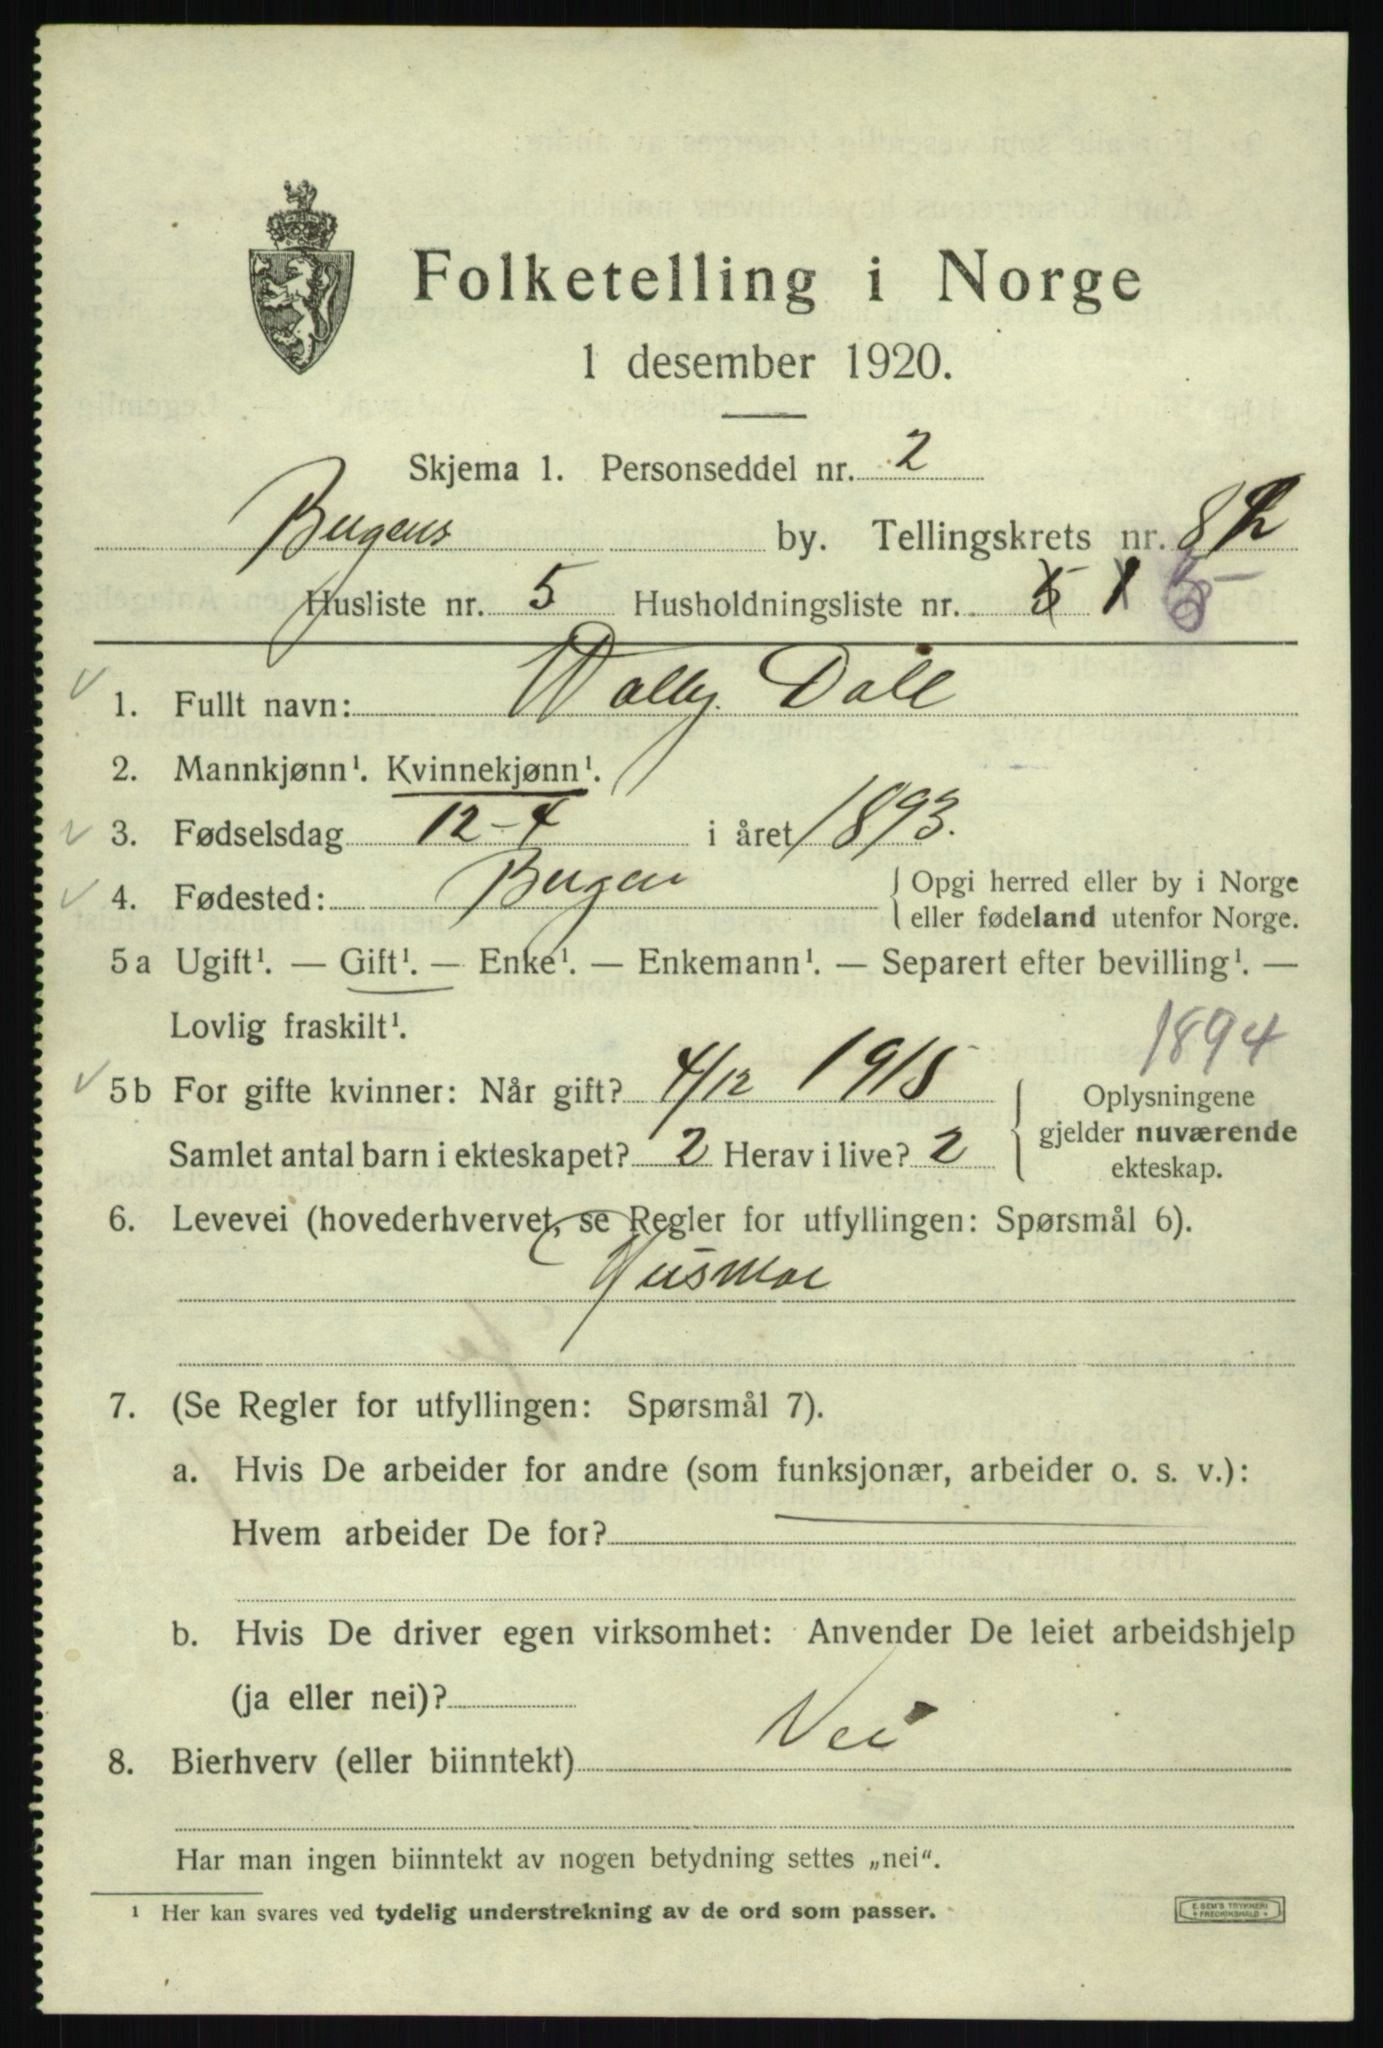 Folketelling i Norge
1 desember 1920.
Skjema 1. Personseddel nr. 2
Bergens by. Tellingskrets nr. 82
Husliste nr. 5 Husholdningsliste nr. 5 1 5
1. Fullt navn: Wally Dall
2. Mannkjønn¹. Kvinnekjønn¹.
3. Fødselsdag 12-4 i året 1893.
4. Fødested: Bergen { Opgi herred eller by i Norge
eller fødeland utenfor Norge.
5 a Ugift¹. — Gift¹. — Enke¹. — Enkemann¹. — Separert efter bevilling¹. —
Lovlig fraskilt¹.
1894
5 b For gifte kvinner: Når gift? 4/12 1915 { Oplysningene
gjelder nuværende
ekteskap.
Samlet antal barn i ekteskapet? 2 Herav i live? 2
6. Levevei (hovederhvervet, se Regler for utfyllingen: Spørsmål 6).
Husmor
7. (Se Regler for utfyllingen: Spørsmål 7).
a. Hvis De arbeider for andre (som funksjonær, arbeider o. s. v.):
Hvem arbeider De for?
b. Hvis De driver egen virksomhet: Anvender De leiet arbeidshjelp
(ja eller nei)?
8. Bierhverv (eller biinntekt) Nei
Har man ingen biinntekt av nogen betydning settes „nei“.
¹ Her kan svares ved tydelig understrekning av de ord som passer.
E. SEM'S TRYKKERI
FREDRIKSHALD